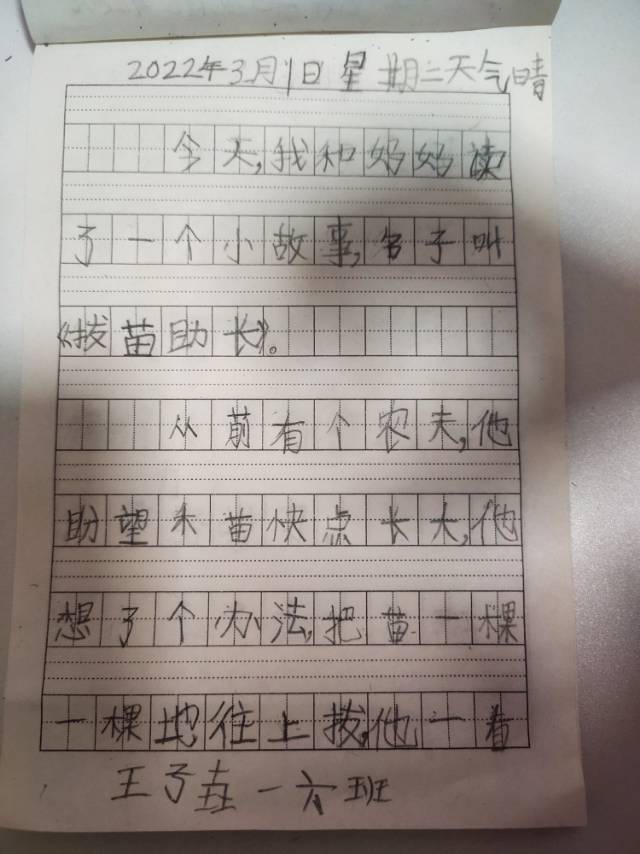 2022年3月1日 星期二 天气晴
今天,我和妈妈读
了一个小故事,名子叫
《拔苗助长》。
从前有个农夫,他
盼望禾苗快点长大,他
想了个办法,把苗一棵
一棵地往上拔,他一看
王子 一六班